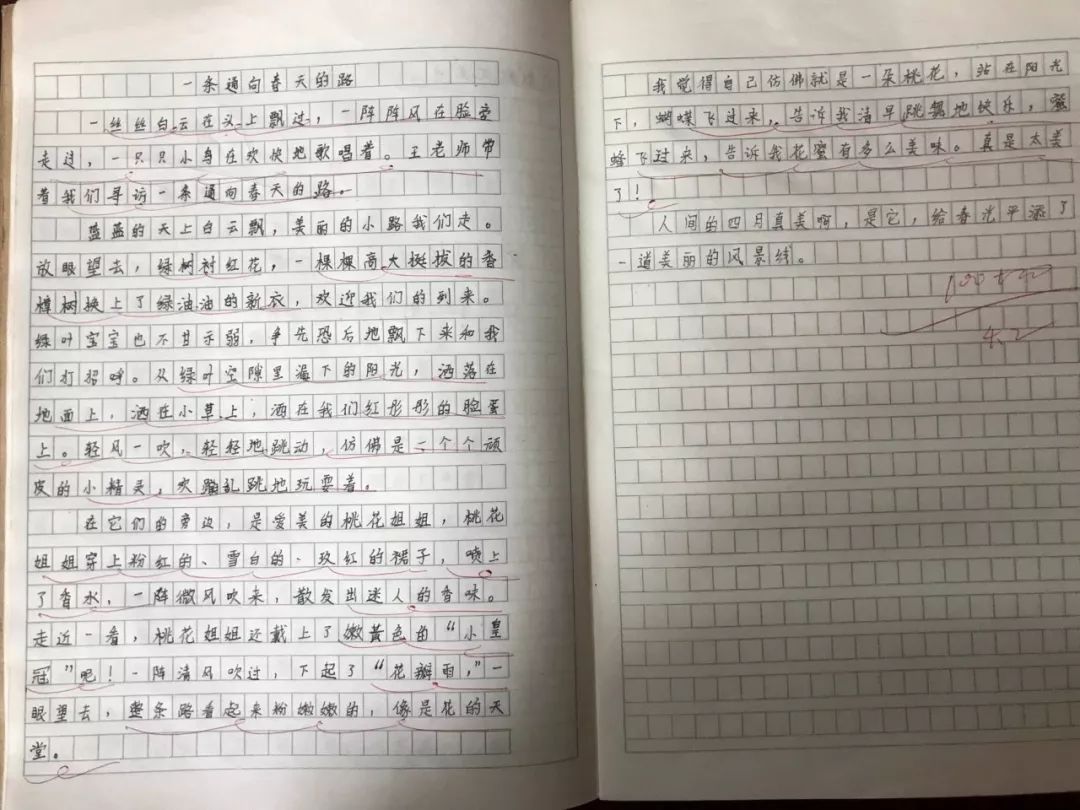 一条通向春天的路
一丝丝白云在头上飘过，一阵阵风在脸旁
走过，一只只小鸟在欢快地歌唱着。王老师带
着我们寻访一条通向春天的路。
蓝蓝的天上白云飘，美丽的小路我们走。
放眼望去，绿树衬红花，一棵棵高大挺拔的香
樟树换上了绿油油的新衣，欢迎我们的到来。
绿叶宝宝也不甘示弱，争先恐后地飘下来和我
们打招呼。从绿叶空隙里漏下的阳光，洒落在
地面上，洒在小草上，洒在我们红彤彤的脸蛋
上。轻风一吹，轻轻地跳动，仿佛是一个个顽
皮的小精灵，欢蹦乱跳地玩耍着。
在它们的旁边，是爱美的桃花姐姐，桃花
姐姐穿上粉红的、雪白的、玫红的裙子，喷上
了香水，一阵微风吹来，散发出迷人的香味。
走近一看，桃花姐姐还戴上了嫩黄色的“小皇
冠”呢！一阵清风吹过，下起了“花瓣雨，”一
眼望去，整条路看起来粉嫩嫩的，像是花的天
堂。
我觉得自己仿佛就是一朵桃花，站在阳光
下，蝴蝶飞过来，告诉我清早跳舞地快乐，蜜
蜂飞过来，告诉我花蜜有多么美味。真是太美
了！
人间的四月真美啊，是它，给春光平添了
一道美丽的风景线。
4.2